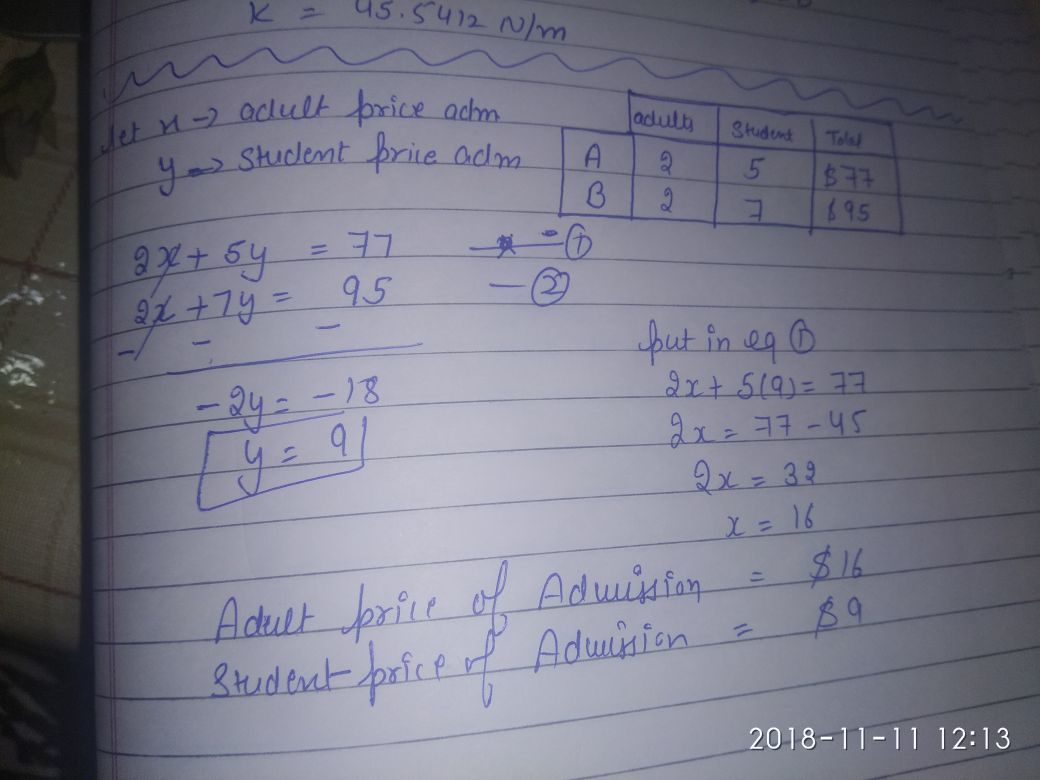 K = 45.5412 N/m
let x → adult price adm
y → student price adm
adults Student Total
A 2 5 $77
B 2 7 $95
2x + 5y = 77 — ①
2x + 7y = 95 — ②
- - -
-2y = -18
y = 9
put in eq ①
2x + 5(9) = 77
2x = 77 - 45
2x = 32
x = 16
Adult price of Admission = $16
Student price of Admission = $9
2018-11-11 12:13